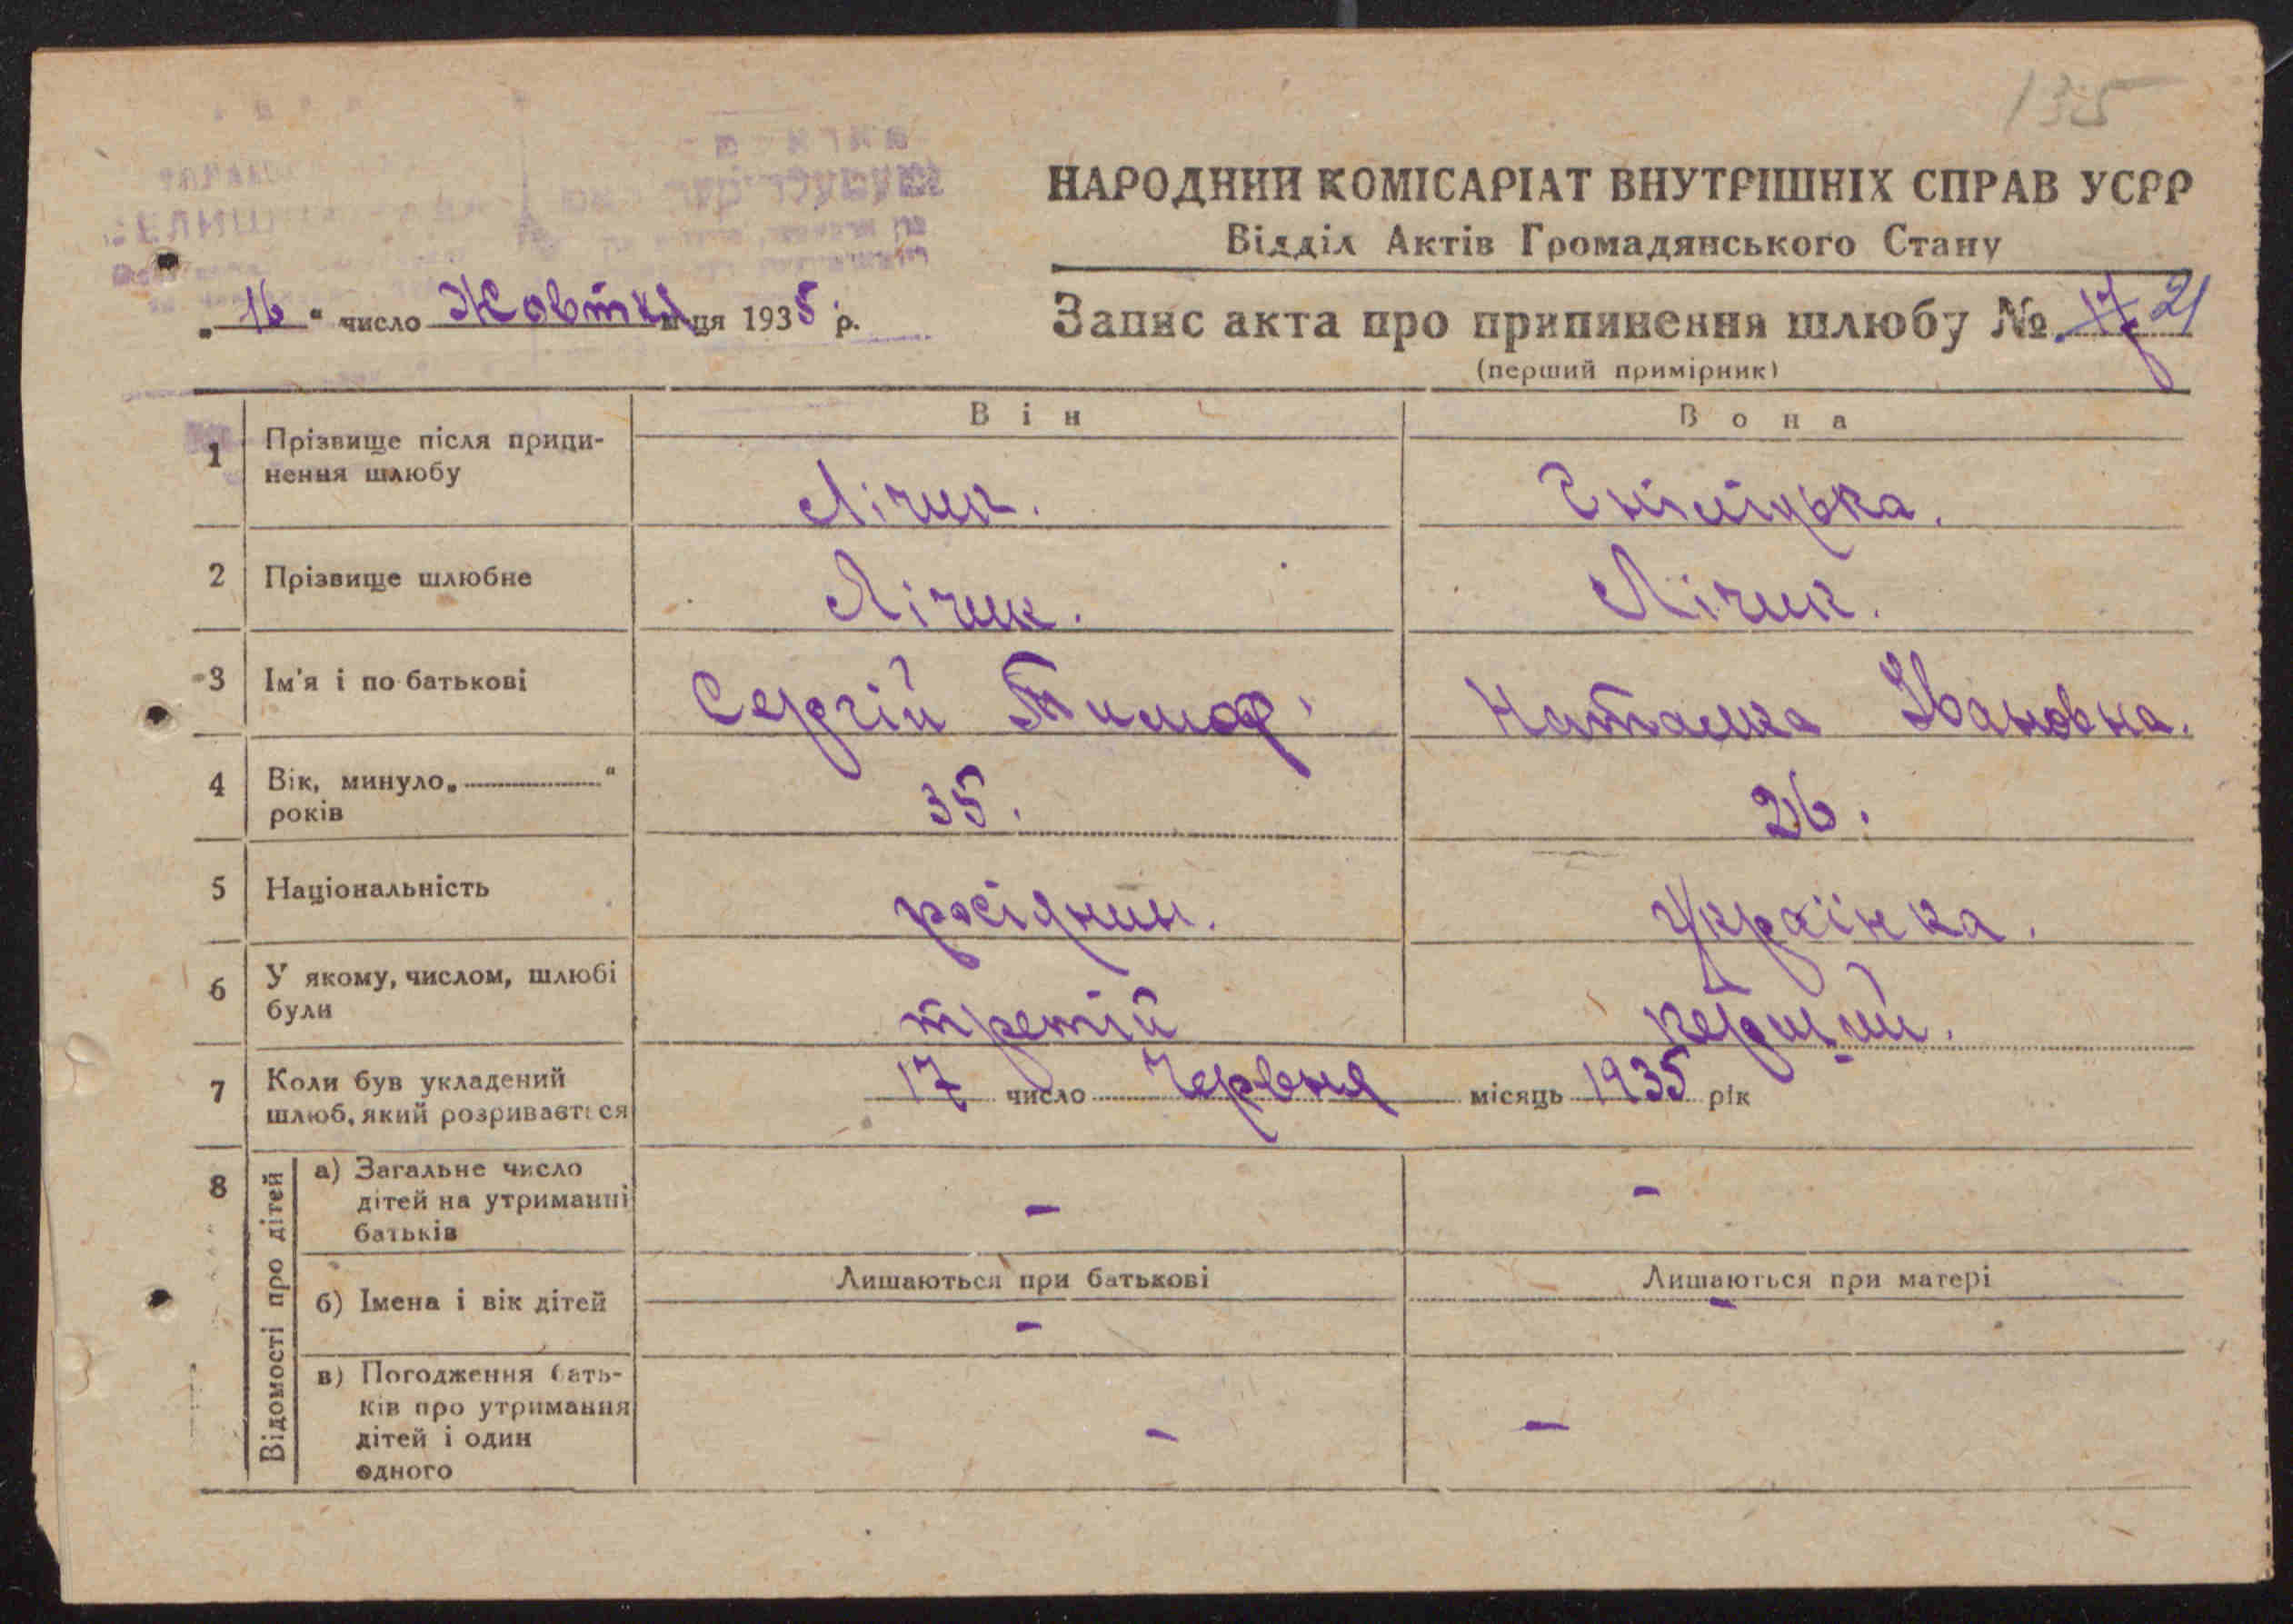 135
НАРОДНИЙ КОМІСАРІАТ ВНУТРІШНІХ СПРАВ УСРР
Відділ Актів Громадянського Стану
„ 16 “ число Жовтня м-ця 1935 р.
Запис акта про припинення шлюбу № 17 21
(перший примірник)
Він Вона
1 Прізвище після припи-
нення шлюбу Лічик.
2 Прізвище шлюбне Лічик. Лічик.
3 Ім'я і по батькові Сергій Тимоф. Наталка Івановна.
4 Вік, минуло „ “
років 35. 26.
5 Національність росіянин. Українка.
6 У якому, числом, шлюбі
були третій перший.
7 Коли був укладений
шлюб, який розривається 17 число Червня місяць 1935 рік
8 Відомості про дітей
а) Загальне число
дітей на утриманні
батьків - -
Лишаються при батькові Лишаються при матері
б) Імена і вік дітей - -
в) Погодження бать-
ків про утримання
дітей і один
одного - -